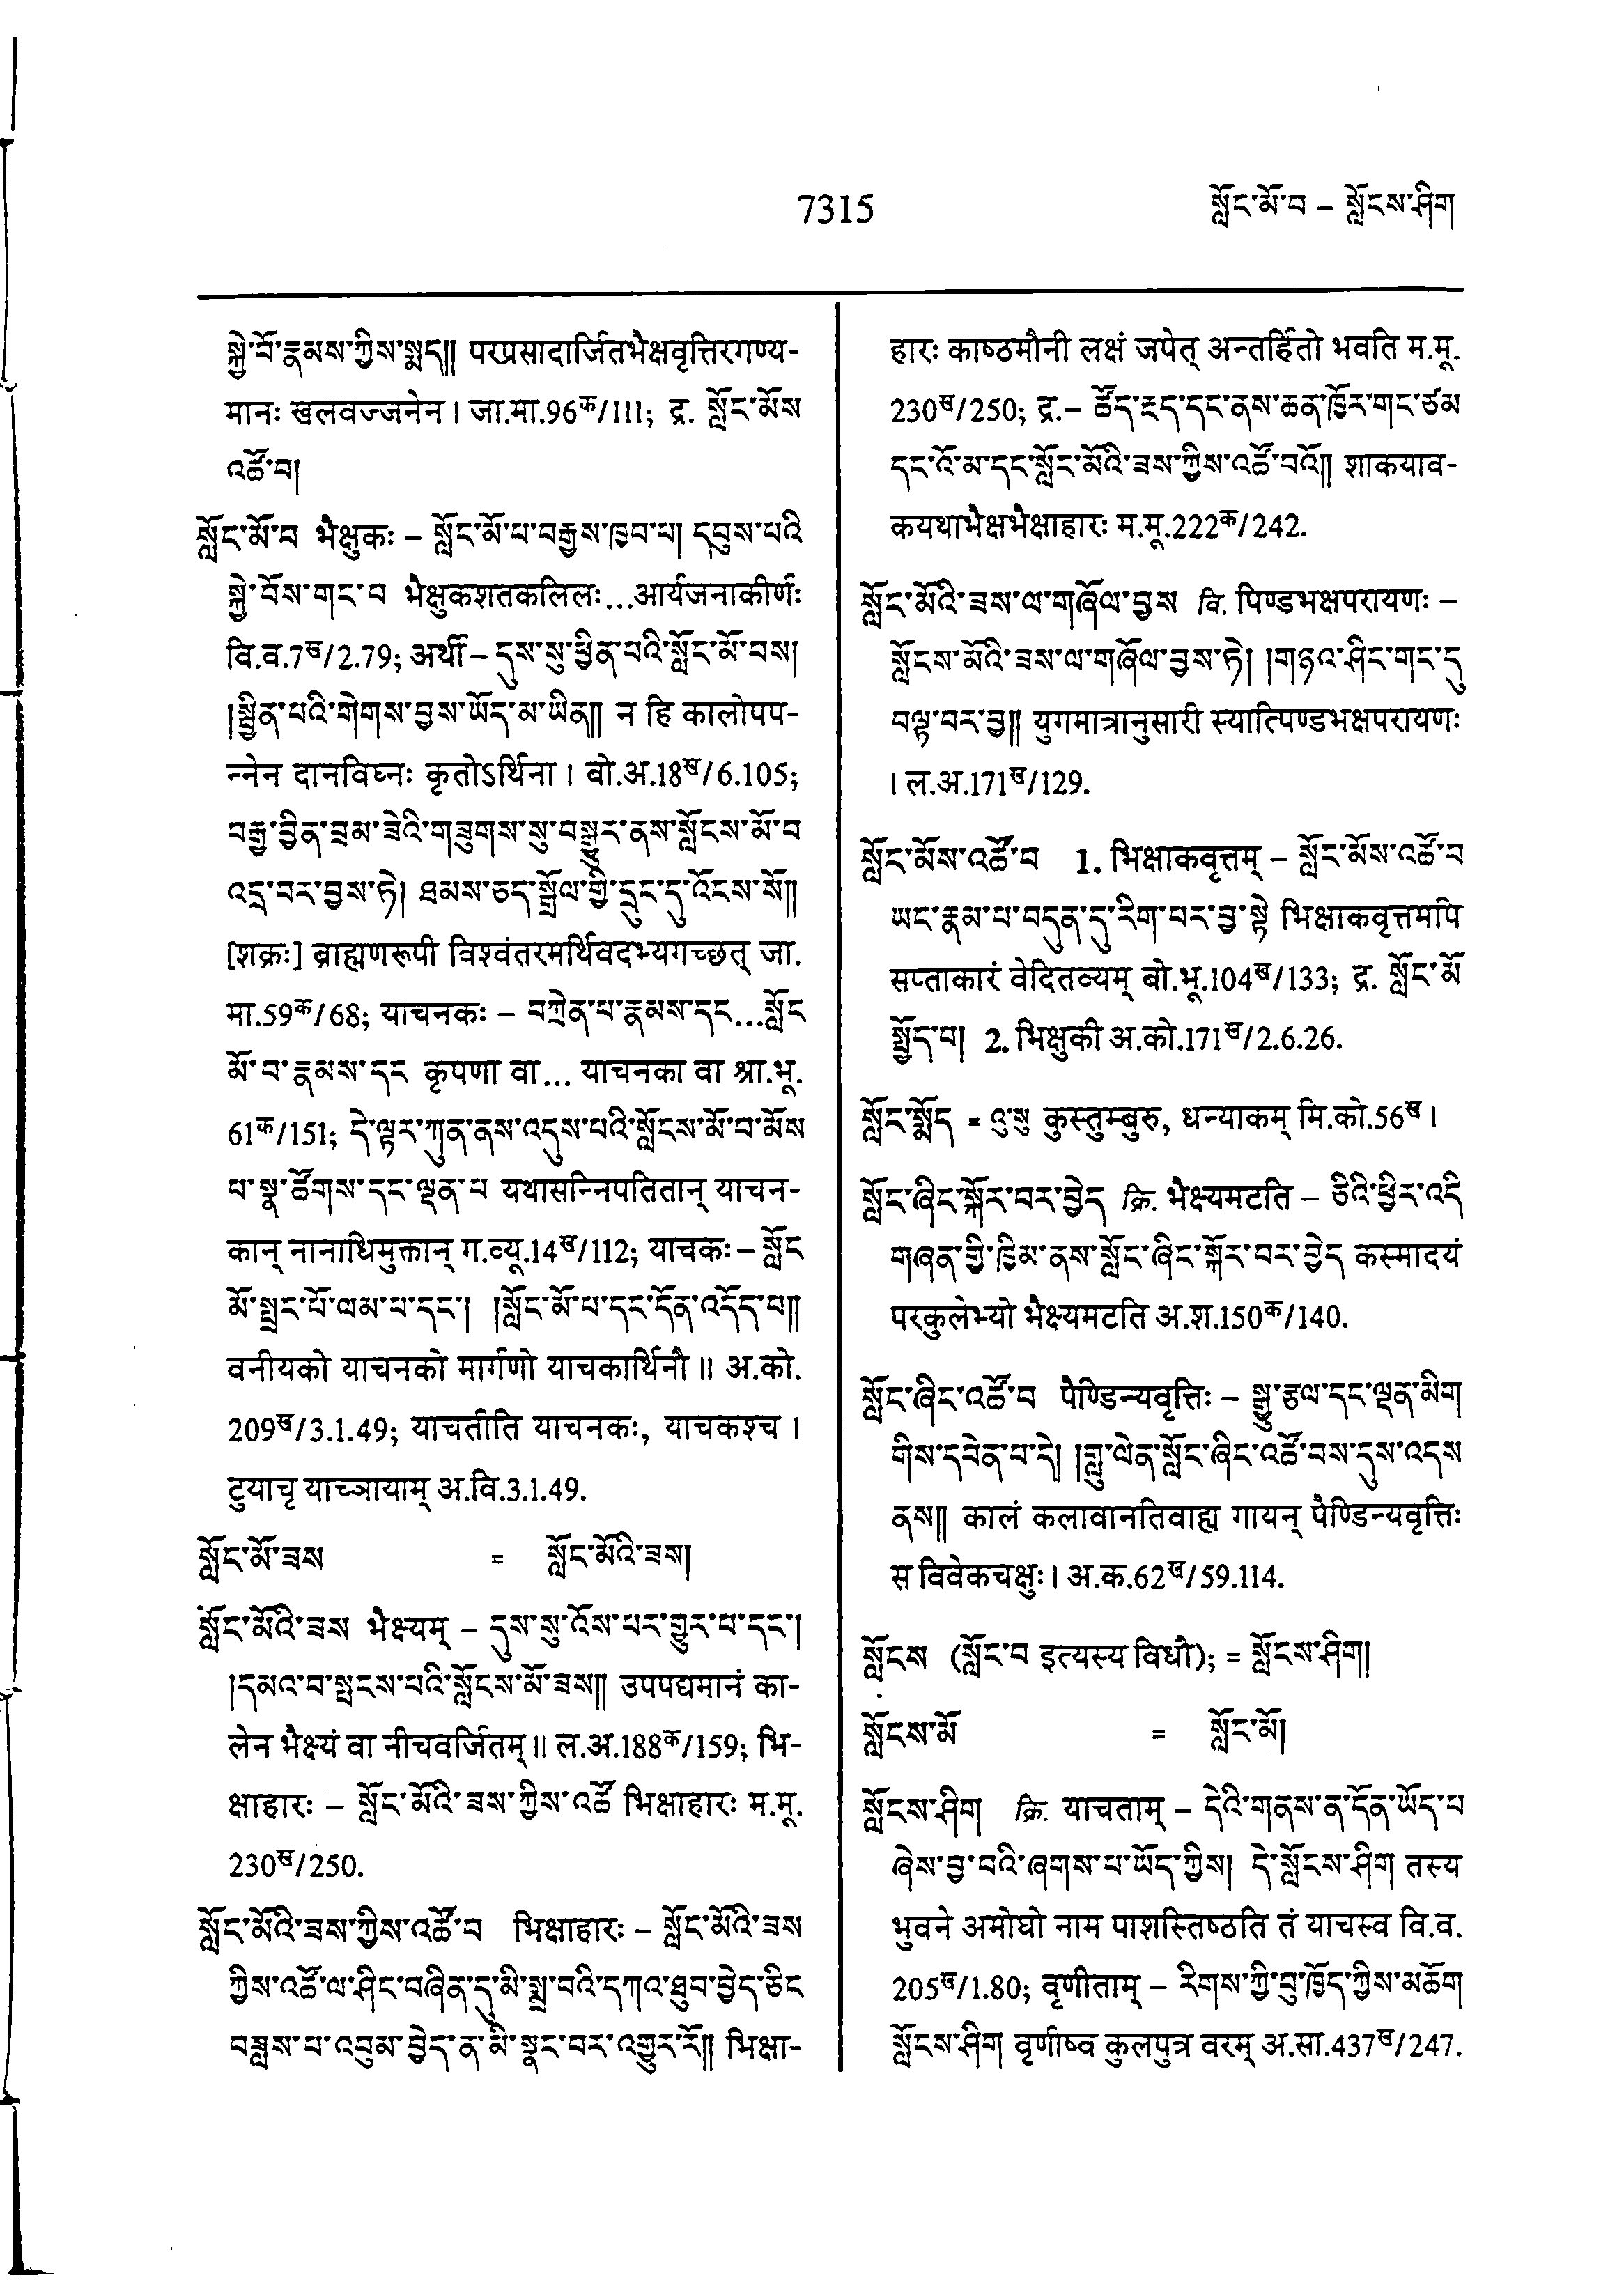 7315
སློང་མོ་བ – སློངས་ཤིག
སྐྱེ་བོ་རྣམས་ཀྱིས་སྨད།། परप्रसादार्जितभैक्षवृत्तिरगण्य-
मानः खलवज्जनेन । जा.मा.96क/111; द्र. སློང་མོས
འཚོ་བ།
སློང་མོ་བ भैक्षुकः – སློང་མོ་པ་བརྒྱས་ཁྱབ་པ། དབུས་པའི
སྐྱེ་བོས་གང་བ भैक्षुकशतकलिलः...आर्यजनाकीर्णः
वि.व.7ख/2.79; अर्थी – དུས་སུ་ཕྱིན་པའི་སློང་མོ་བས།
།སྦྱིན་པའི་གེགས་བྱས་ཡོད་མ་ཡིན།། न हि कालोपप-
न्नेन दानविघ्नः कृतोऽर्थिना । बो.अ.18ख/6.105;
བརྒྱ་བྱིན་བྲམ་ཟེའི་གཟུགས་སུ་བསྒྱུར་ནས་སློངས་མོ་བ
འདྲ་བར་བྱས་ཏེ། ཐམས་ཅད་སྒྲོལ་གྱི་དྲུང་དུ་འོངས་སོ།།
[शक्रः] ब्राह्मणरूपी विश्वंतरमर्थिवदभ्यगच्छत् जा.
मा.59क/68; याचनकः – བཀྲེན་པ་རྣམས་དང...སློང
མོ་བ་རྣམས་དང कृपणा वा... याचनका वा श्रा.भू.
61क/151; དེ་ལྟར་ཀུན་ནས་འདུས་པའི་སློངས་མོ་བ་མོས
པ་སྣ་ཚོགས་དང་ལྡན་པ यथासन्निपतितान् याचन-
कान् नानाधिमुक्तान् ग.व्यू.14ख/112; याचकः – སློང
མོ་སྤྲང་པོ་ལམ་པ་དང་། །སློང་མོ་པ་དང་དོན་འདོད་པ།།
वनीयको याचनको मार्गणो याचकार्थिनौ ॥ अ.को.
209ख/3.1.49; याचतीति याचनकः, याचकश्च ।
टुयाचृ याच्ञायाम् अ.वि.3.1.49.
སློང་མོ་ཟས = སློང་མོའི་ཟས།
སློང་མོའི་ཟས भैक्ष्यम् – དུས་སུ་འོས་པར་གྱུར་པ་དང་།
།དམའ་བ་སྤངས་པའི་སློངས་མོ་ཟས།། उपपद्यमानं का-
लेन भैक्ष्यं वा नीचवर्जितम् ॥ ल.अ.188क/159; भि-
क्षाहारः – སློང་མོའི་ཟས་ཀྱིས་འཚོ भिक्षाहारः म.मू.
230ख/250.
སློང་མོའི་ཟས་ཀྱིས་འཚོ་བ भिक्षाहारः – སློང་མོའི་ཟས
ཀྱིས་འཚོ་ལ་ཤིང་བཞིན་དུ་མི་སྨྲ་བའི་དཀའ་ཐུབ་བྱེད་ཅིང
བཟླས་པ་འབུམ་བྱེད་ན་མི་སྣང་བར་འགྱུར་རོ།། भिक्षा-
हारः काष्ठमौनी लक्षं जपेत् अन्तर्हितो भवति म.मू.
230ख/250; द्र.– ཚོད་རད་དང་ནས་ཆན་ཁྱོར་གང་ཙམ
དང་འོ་མ་དང་སློང་མོའི་ཟས་ཀྱིས་འཚོ་བའོ།། शाकयाव-
कयथाभैक्षभैक्षाहारः म.मू.222क/242.
སློང་མོའི་ཟས་ལ་གཞོལ་བྱས वि. पिण्डभक्षपरायणः –
སློངས་མོའི་ཟས་ལ་གཞོལ་བྱས་ཏེ། །གཉའ་ཤིང་གང་དུ
བལྟ་བར་བྱ།། युगमात्रानुसारी स्यात्पिण्डभक्षपरायणः
। ल.अ.171ख/129.
སློང་མོས་འཚོ་བ 1. भिक्षाकवृत्तम् – སློང་མོས་འཚོ་བ
ཡང་རྣམ་པ་བདུན་དུ་རིག་པར་བྱ་སྟེ भिक्षाकवृत्तमपि
सप्ताकारं वेदितव्यम् बो.भू.104ख/133; द्र. སློང་མོ
སྤྱོད་པ། 2. भिक्षुकी अ.को.171ख/2.6.26.
སློང་སྨོད = འུ་སུ कुस्तुम्बुरु, धन्याकम् मि.को.56ख ।
སློང་ཞིང་སྐོར་བར་བྱེད क्रि. भैक्ष्यमटति – ཅིའི་ཕྱིར་འདི
གཞན་གྱི་ཁྱིམ་ནས་སློང་ཞིང་སྐོར་བར་བྱེད कस्मादयं
परकुलेभ्यो भैक्ष्यमटति अ.श.150क/140.
སློང་ཞིང་འཚོ་བ पैण्डिन्यवृत्तिः – སྒྱུ་རྩལ་དང་ལྡན་མིག
གིས་དབེན་པ་དེ། །གླུ་ལེན་སློང་ཞིང་འཚོ་བས་དུས་འདས
ནས།། कालं कलावानतिवाह्य गायन् पैण्डिन्यवृत्तिः
स विवेकचक्षुः । अ.क.62ख/59.114.
སློངས (སློང་བ इत्यस्य विधौ); = སློངས་ཤིག།
སློངས་མོ = སློང་མོ།
སློངས་ཤིག क्रि. याचताम् – དེའི་གནས་ན་དོན་ཡོད་པ
ཞེས་བྱ་བའི་ཞགས་པ་ཡོད་ཀྱིས། དེ་སློངས་ཤིག तस्य
भुवने अमोघो नाम पाशस्तिष्ठति तं याचस्व वि.व.
205ख/1.80; वृणीताम् – རིགས་ཀྱི་བུ་ཁྱོད་ཀྱིས་མཆོག
སློངས་ཤིག वृणीष्व कुलपुत्र वरम् अ.सा.437ख/247.